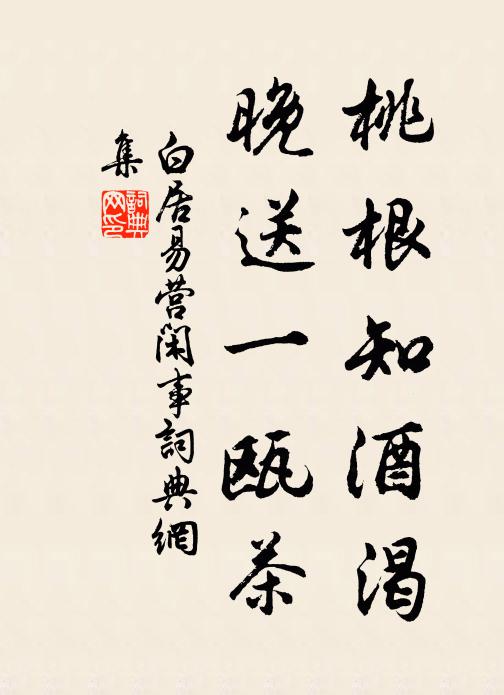 桃根知酒渴
晚送一瓯茶
白居易营闲事詞典網
集
詞典
网印